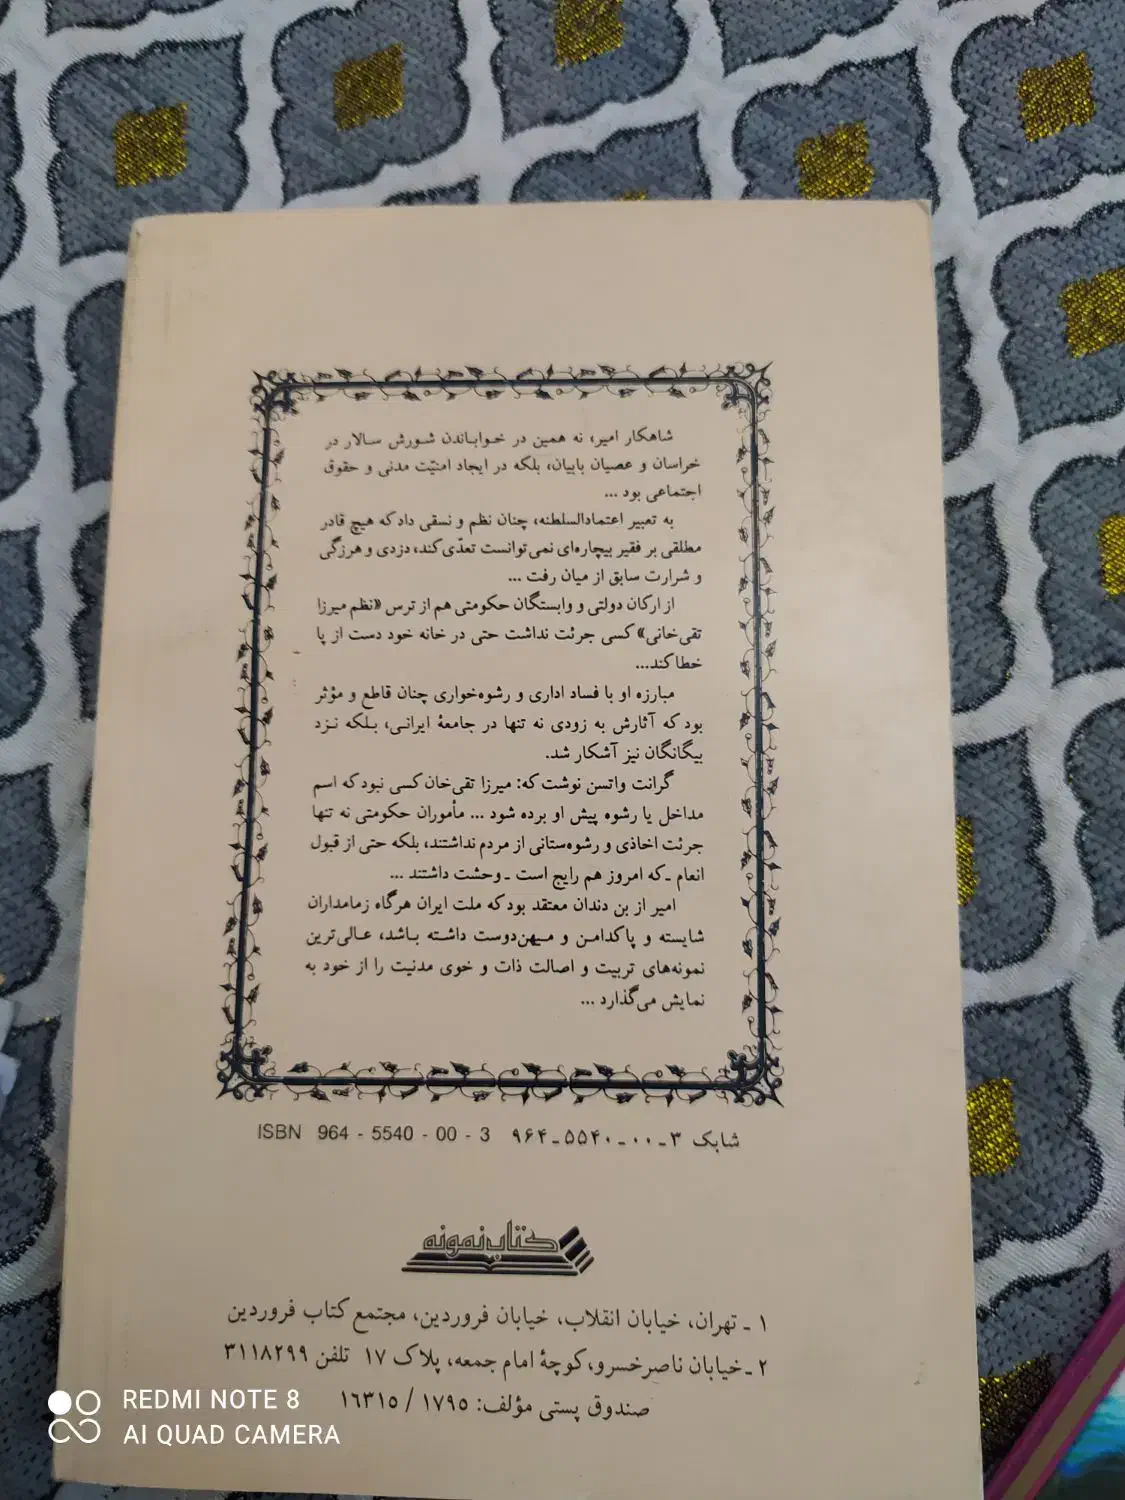 شاهکار امیر، نه همین در خواباندن شورش سالار در
خراسان و عصیان بابیان، بلکه در ایجاد امنیّت مدنی و حقوق
اجتماعی بود ...
به تعبیر اعتمادالسلطنه، چنان نظم و نسقی داد که هیچ قادر
مطلقی بر فقیر بیچاره‌ای نمی‌توانست تعدّی کند، دزدی و هرزگی
و شرارت سابق از میان رفت ...
از ارکان دولتی و وابستگان حکومتی هم از ترس «نظم میرزا
تقی‌خانی» کسی جرئت نداشت حتی در خانه خود دست از پا
خطا کند...
مبارزه او با فساد اداری و رشوه‌خواری چنان قاطع و مؤثر
بود که آثارش به زودی نه تنها در جامعهٔ ایرانی، بلکه نزد
بیگانگان نیز آشکار شد.
گرانت واتسن نوشت که: میرزا تقی‌خان کسی نبود که اسم
مداخل یا رشوه پیش او برده شود ... مأموران حکومتی نه تنها
جرئت اخاذی و رشوه‌ستانی از مردم نداشتند، بلکه حتی از قبول
انعام ـ که امروز هم رایج است ـ وحشت داشتند ...
امیر از بن دندان معتقد بود که ملت ایران هرگاه زمامداران
شایسته و پاکدامن و میهن‌دوست داشته باشد، عالی‌ترین
نمونه‌های تربیت و اصالت ذات و خوی مدنیت را از خود به
نمایش می‌گذارد ...
شابک ۳ـ۰۰ـ۵۵۴۰ـ۹۶۴ ISBN 964 - 5540 - 00 - 3
کتاب نمونه
۱ ـ تهران، خیابان انقلاب، خیابان فروردین، مجتمع کتاب فروردین
۲ ـ خیابان ناصرخسرو، کوچهٔ امام جمعه، پلاک ۱۷ تلفن ۳۱۱۸۲۹۹
صندوق پستی مؤلف: ۱۷۹۵ / ۱۶۳۱۵
REDMI NOTE 8
AI QUAD CAMERA